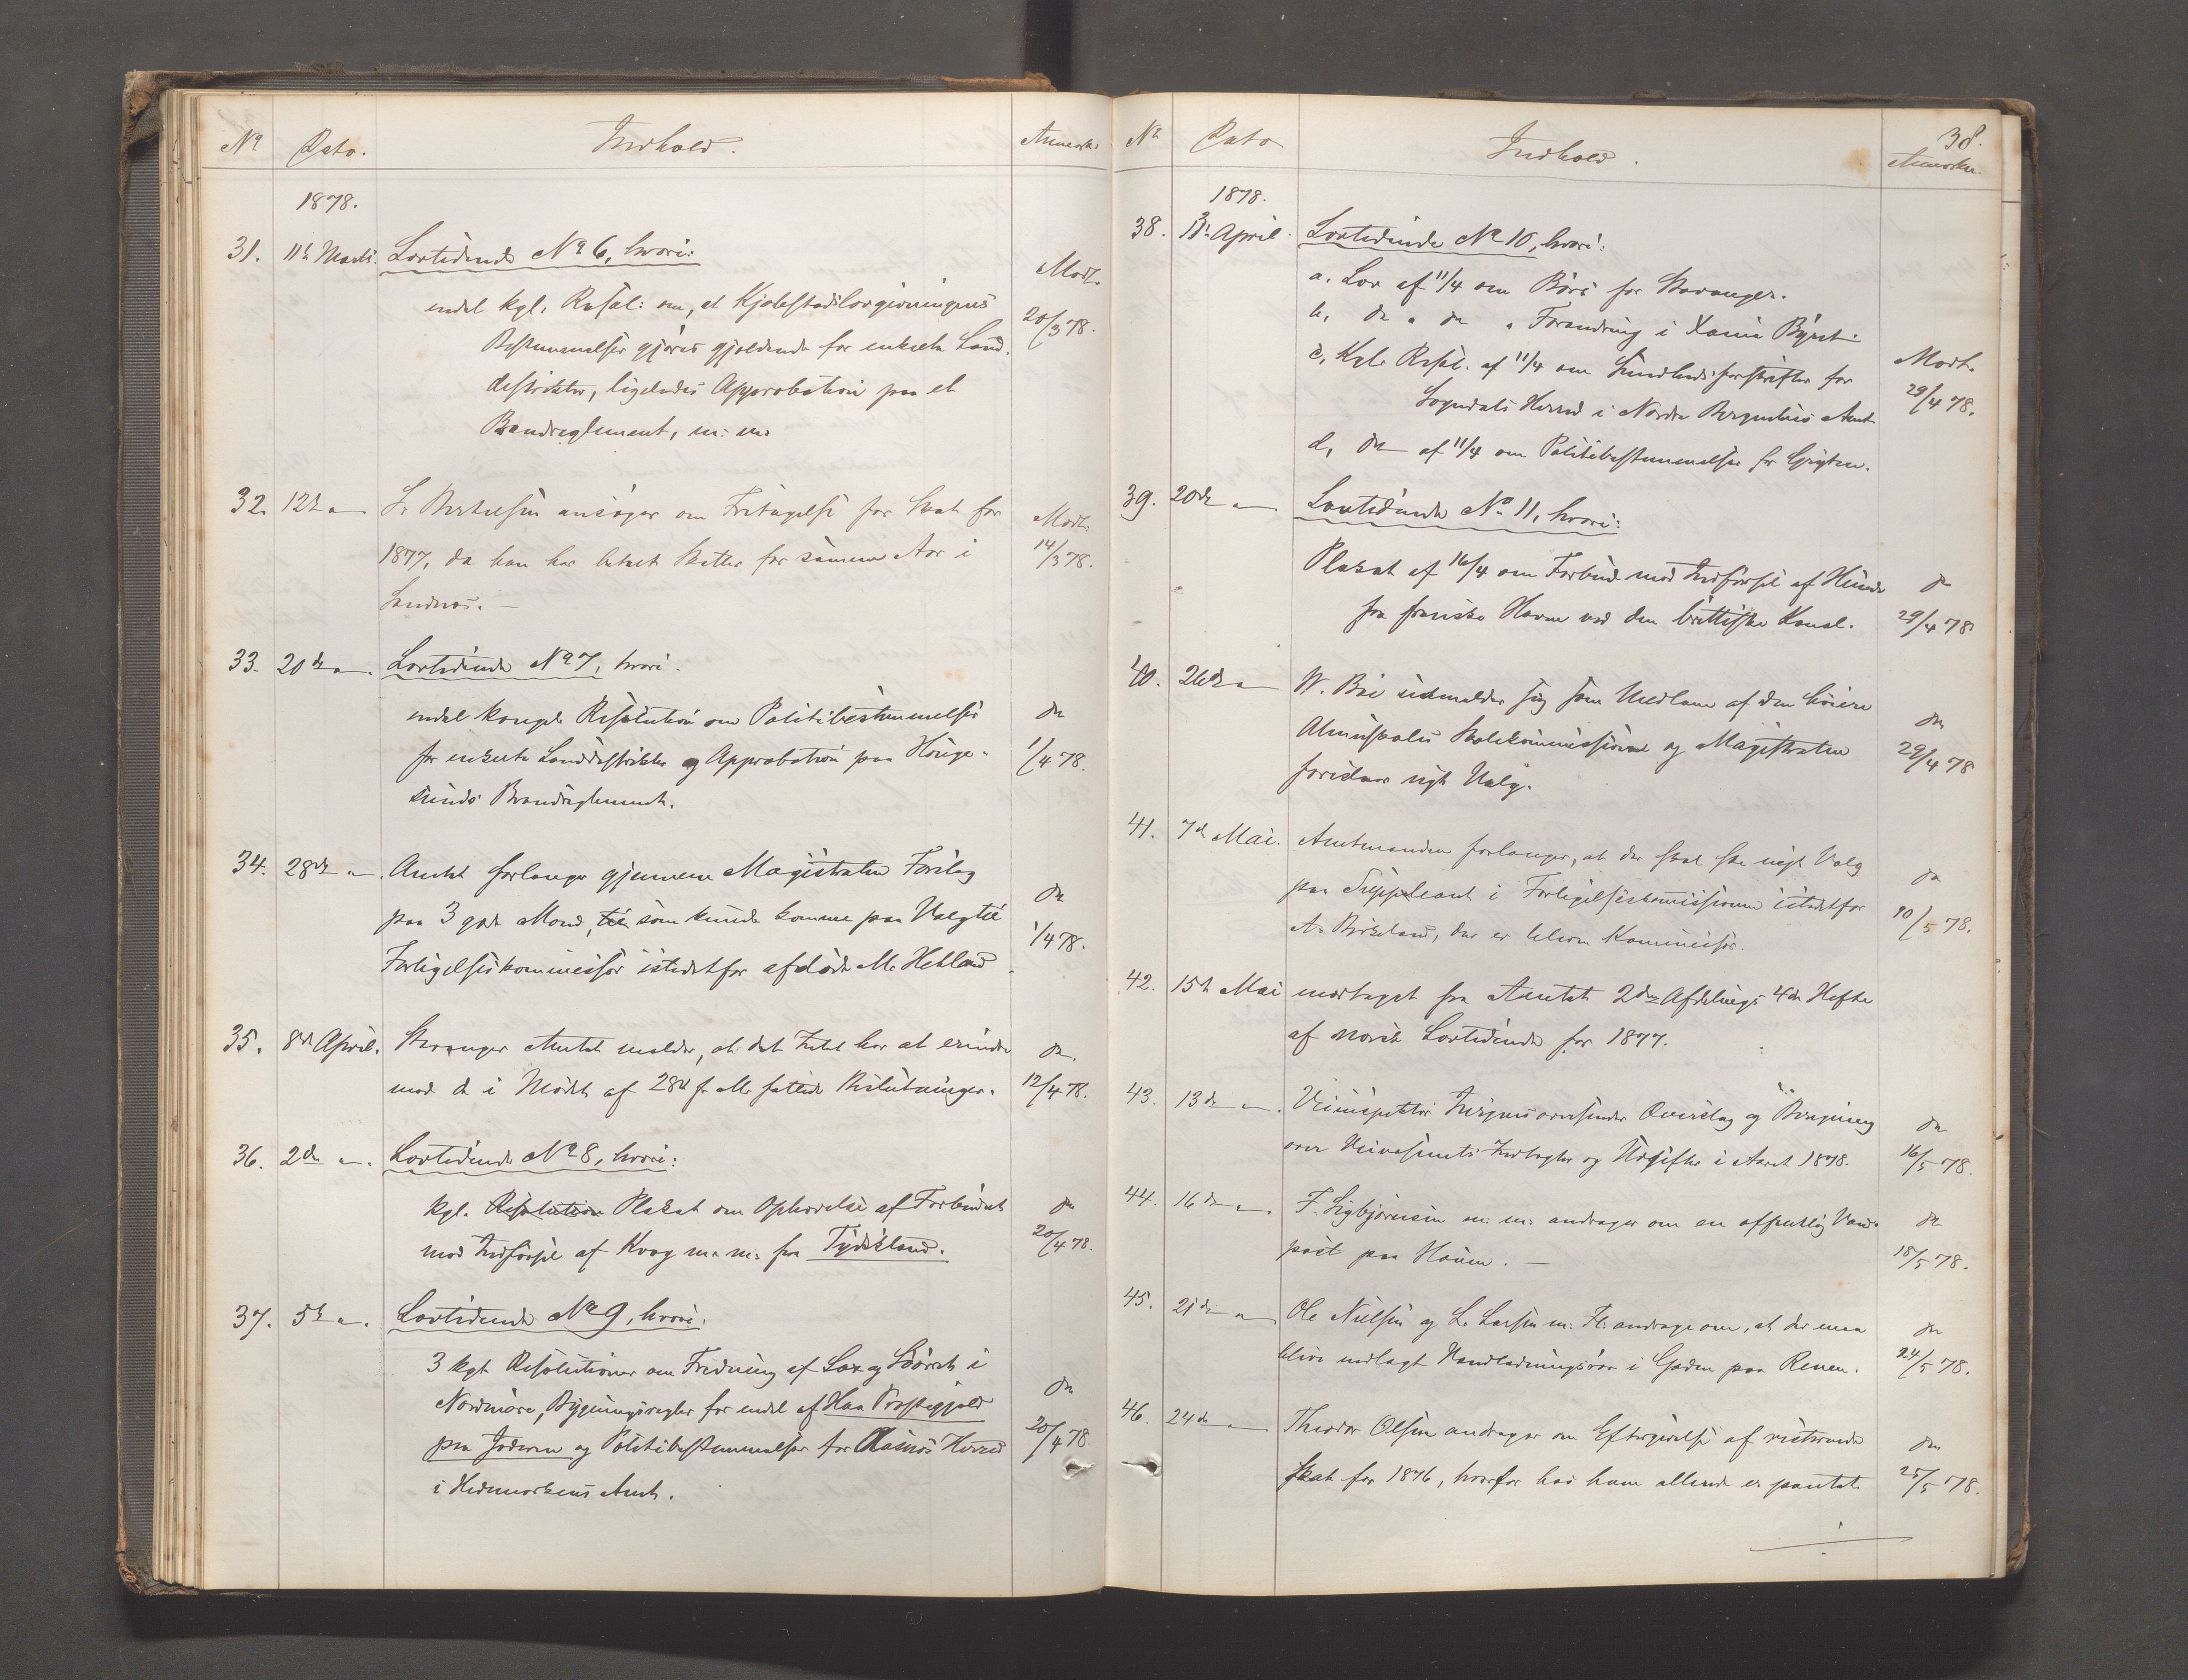 No Dato. Indhold. Anmærk.
1878.
31. 11te Marts. Lovtidende No 6, hvori: Modt. 20/3 78.
endel kgl. Resol: om, at Kjøbstadslovgivningens
Bestemmelser gjøres gjældende for enkelte Land-
distrikter, ligeledes Approbation paa et
Brandreglement, m: m.
32. 12te " L. Bertelsen ansøger om Fritagelse for Skat for Modt. 14/3 78.
1877, da han har betalt Skatter for samme Aar i
Sandnæs. —
33. 20de " Lovtidende No 7, hvori.
endel kongel. Resolution om Politibestemmelser do
for enkelte Landdistrikter og Approbation paa Hauge- 1/4 78.
sunds Brandreglement.
34. 28de " Amtet forlanger gjennem Magistraten Forslag do
paa 3 gode Mænd, til som kunde komme paa Valg til 1/4 78.
Forligelseskommissær istedetfor afdøde M. Hetland.
35. 8de April. Stavanger Amtet melder, at det Intet har at erindre do.
mod de i Mødet af 28de f. M. fattede Beslutninger. 12/4 78.
36. 2den " Lovtidende No 8, hvori:
kgl. Resolution Plakat om Ophævelse af Forbudet do
mod Indførsel af Kvæg m. m. fra Tydskland. 20/4 78.
37. 5te " Lovtidende No 9, hvori:
3 kgl. Resolutioner om Fredning af Lax og Søørret i
Nordmøre, Bygningsregler for endel af Haa Præstegjeld do
paa Jæderen og Politibestemmelser for Aasnes Herred 20/4 78.
i Hedmarkens Amt.
38.
No Dato Indhold. Anmærkn.
1878.
38. 13de April. Lovtidende No 10, hvori:
a. Lov af 11/4 om Børs for Stavanger.
b. do " do " Forandring i Xania Byret.
c. Kgl. Resol. af 11/4 om Sundhedsforskrifter for Modt.
Sogndals Herred i Nordre Bergenhus Amt 29/4 78.
d. do af 11/4 om Politibestemmelser for
39. 20de " Lovtidende No 11, hvori:
Plakat af 16/4 om Forbud mod Indførsel af Hunde do
fra franske Havne ved den brittiske Kanal. 29/4 78
40. 26de " W. Bøe udmelder sig som Medlem af den høiere do
Almuskoles Skolekommission og Magistraten 29/4 78
foreslaar nyt Valg.
41. 7de Mai. Amtmanden forlanger, at der skal ske nyt Valg do
paa Suppleant i Forligelseskommissionen istedetfor 10/5 78.
A. Birkeland, der er bleven Kommissær.
42. 15te Mai modtaget fra Amtet 2den Afdelings 4de Hefte
af norsk Lovtidende for 1877.
43. 13de " Veiinspektør oversender Overslag og Beregning do
over Veivæsenets Indtægter og Udgifter i Aaret 1878. 16/5 78.
44. 16de " F. Sigbjørnsen m: m: andrager om en offentlig Vand- do
post paa Haven. — 18/5 78.
45. 21de " Ole Nielsen og L. Larsen m. Fl. andrage om, at der maa do
blive nedlagt Vandledningsrør i Gaden paa Renen. 24/5 78.
46. 24de " Theodor Olsen andrager om Eftergivelse af resterende do
Skat for 1876, hvorfor hos ham allerede er pantet. 25/5 78.